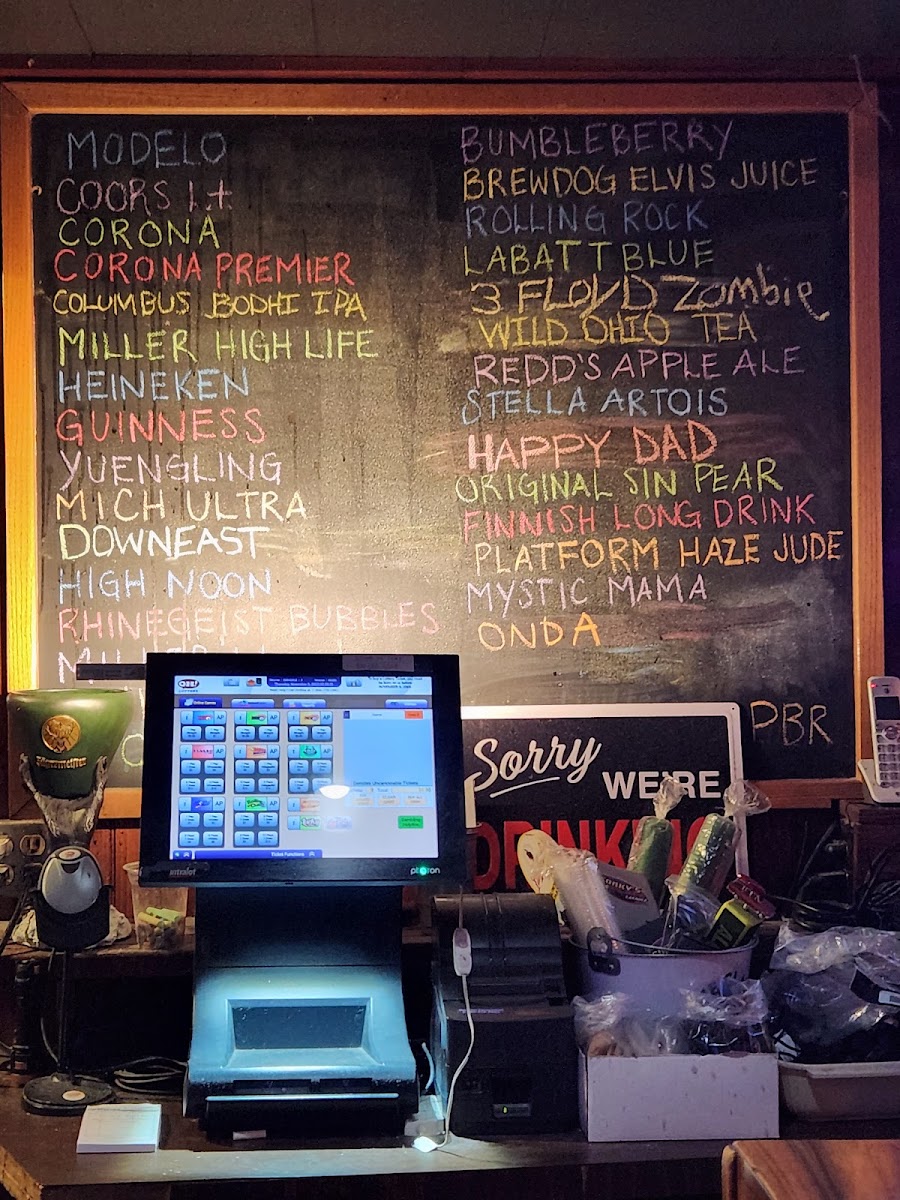 MODELO
COORS Lt
CORONA
CORONA PREMIER
COLUMBUS BODHI IPA
MILLER HIGH LIFE
HEINEKEN
GUINNESS
YUENGLING
MICH ULTRA
DOWNEAST
HIGH NOON
RHINEGEIST BUBBLES
BUMBLEBERRY
BREWDOG ELVIS JUICE
ROLLING ROCK
LABATT BLUE
3 FLOYD Zombie
WILD OHIO TEA
REDD'S APPLE ALE
STELLA ARTOIS
HAPPY DAD
ORIGINAL SIN PEAR
FINNISH LONG DRINK
PLATFORM HAZE JUDE
MYSTIC MAMA
ONDA
PBR
Sorry
WE'RE
DRINKING
Jägermeister
Ticket Functions
intralot
photon